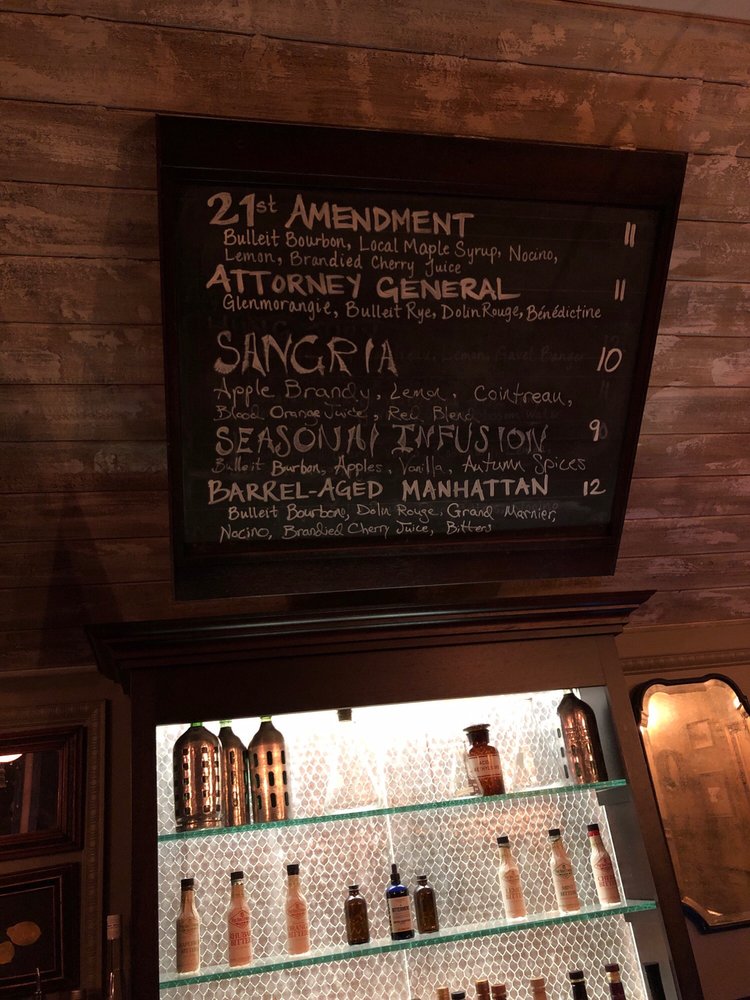 21st AMENDMENT 11
Bulleit Bourbon, Local Maple Syrup, Nocino,
Lemon, Brandied Cherry Juice
ATTORNEY GENERAL 11
Glenmorangie, Bulleit Rye, Dolin Rouge, Bénédictine
SANGRIA 10
Apple Brandy, Lemon, Cointreau,
Blood Orange Juice, Red Blend
SEASONAL INFUSION 9
Bulleit Burbon, Apples, Vanilla, Autumn Spices
BARREL-AGED MANHATTAN 12
Bulleit Bourbon, Dolin Rouge, Grand Marnier,
Nocino, Brandied Cherry Juice, Bitters
ACID
BITTERS
MINT
BITTERS